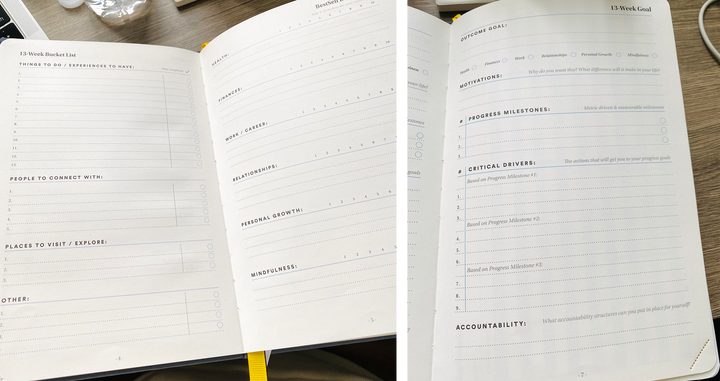 13-Week Bucket List
THINGS TO DO / EXPERIENCES TO HAVE:
1.
2.
3.
4.
5.
6.
7.
8.
9.
10.
11.
12.
13.
PEOPLE TO CONNECT WITH:
1.
2.
3.
4.
5.
PLACES TO VISIT / EXPLORE:
1.
2.
3.
OTHER:
1.
2.
3.
HEALTH:
FINANCES:
WORK / CAREER:
RELATIONSHIPS:
PERSONAL GROWTH:
MINDFULNESS:
13-Week Goal
OUTCOME GOAL:
Health Finances Work Relationships Personal Growth Mindfulness
MOTIVATIONS: Why do you want this? What difference will it make in your life?
# PROGRESS MILESTONES: Metric driven & measurable milestones
1.
2.
3.
# CRITICAL DRIVERS: The actions that will get you to your progress goals
Based on Progress Milestone #1:
1.
2.
3.
Based on Progress Milestone #2:
4.
5.
6.
Based on Progress Milestone #3:
7.
8.
9.
ACCOUNTABILITY: What accountability structures can you put in place for yourself?
- 7 -